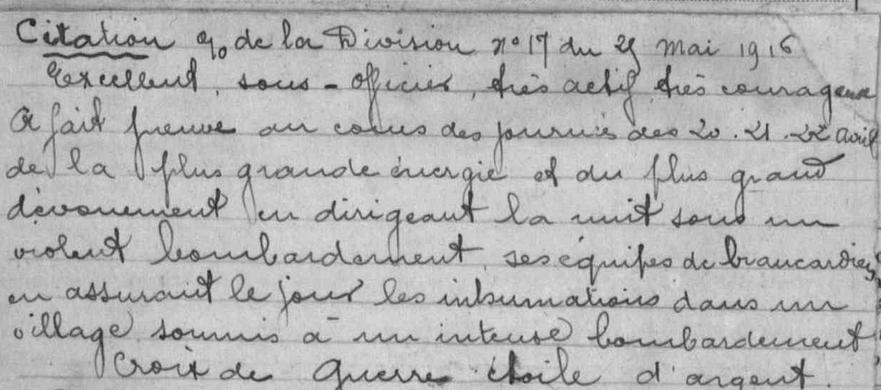 Citation go de la Division n° 17 du 29 mai 1916
Excellent, sous-officier, très actif très courageux
A fait preuve au cours des journées des 20.21.22 avril
de la plus grande énergie et du plus grand
dévouement en dirigeant la nuit sous un
violent bombardement, ses équipes de brancardiers,
en assurant le jour les inhumations dans un
village soumis à un intense bombardement
Croix de Guerre étoile d'argent